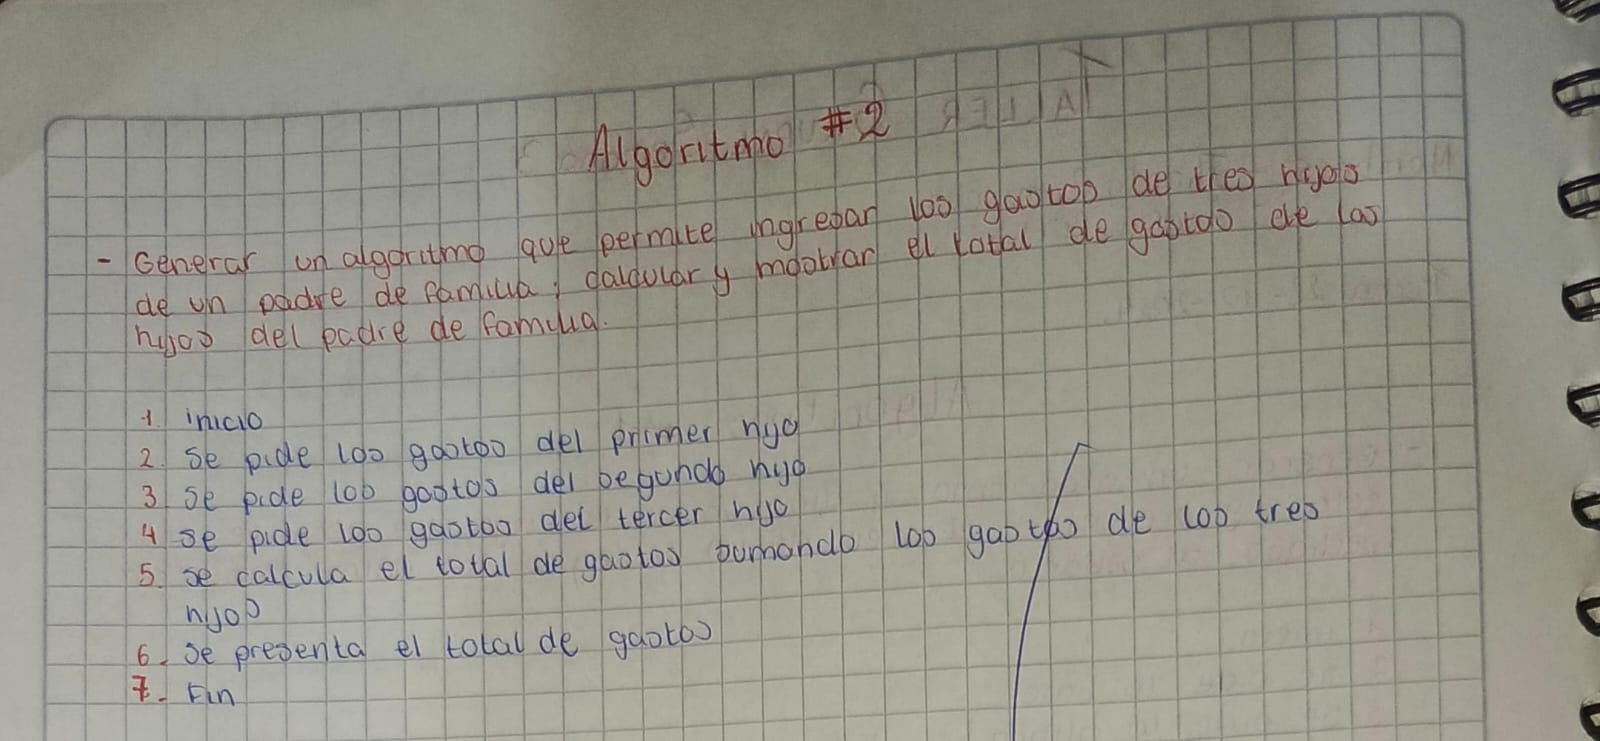 Algoritmo #2
- Generar un algoritmo que permite ingresar los gastos de tres hijos
de un padre de familia; calcular y mostrar el total de gastos de las
hijos del padre de familia.
1. inicio
2. Se pide los gastos del primer hijo
3 Se pide los gastos del segundo hijo
4 se pide los gastos del tercer hijo
5. se calcula el total de gastos sumando los gastos de los tres
hijos
6. Se presenta el total de gastos
7. Fin